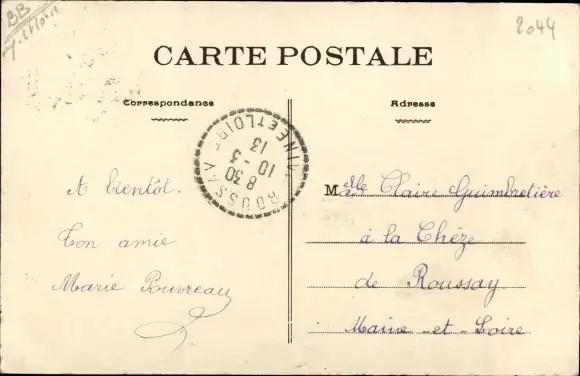 BB
2044
CARTE POSTALE
Correspondance
Adresse
ROUSSAY MAINE ET LOIRE
8 30
10 - 3
13
A bientôt.
Ton amie
Marie Pouvreau
Melle Claire Guimbretière
à la Chèze
de Roussay
Maine-et-Loire